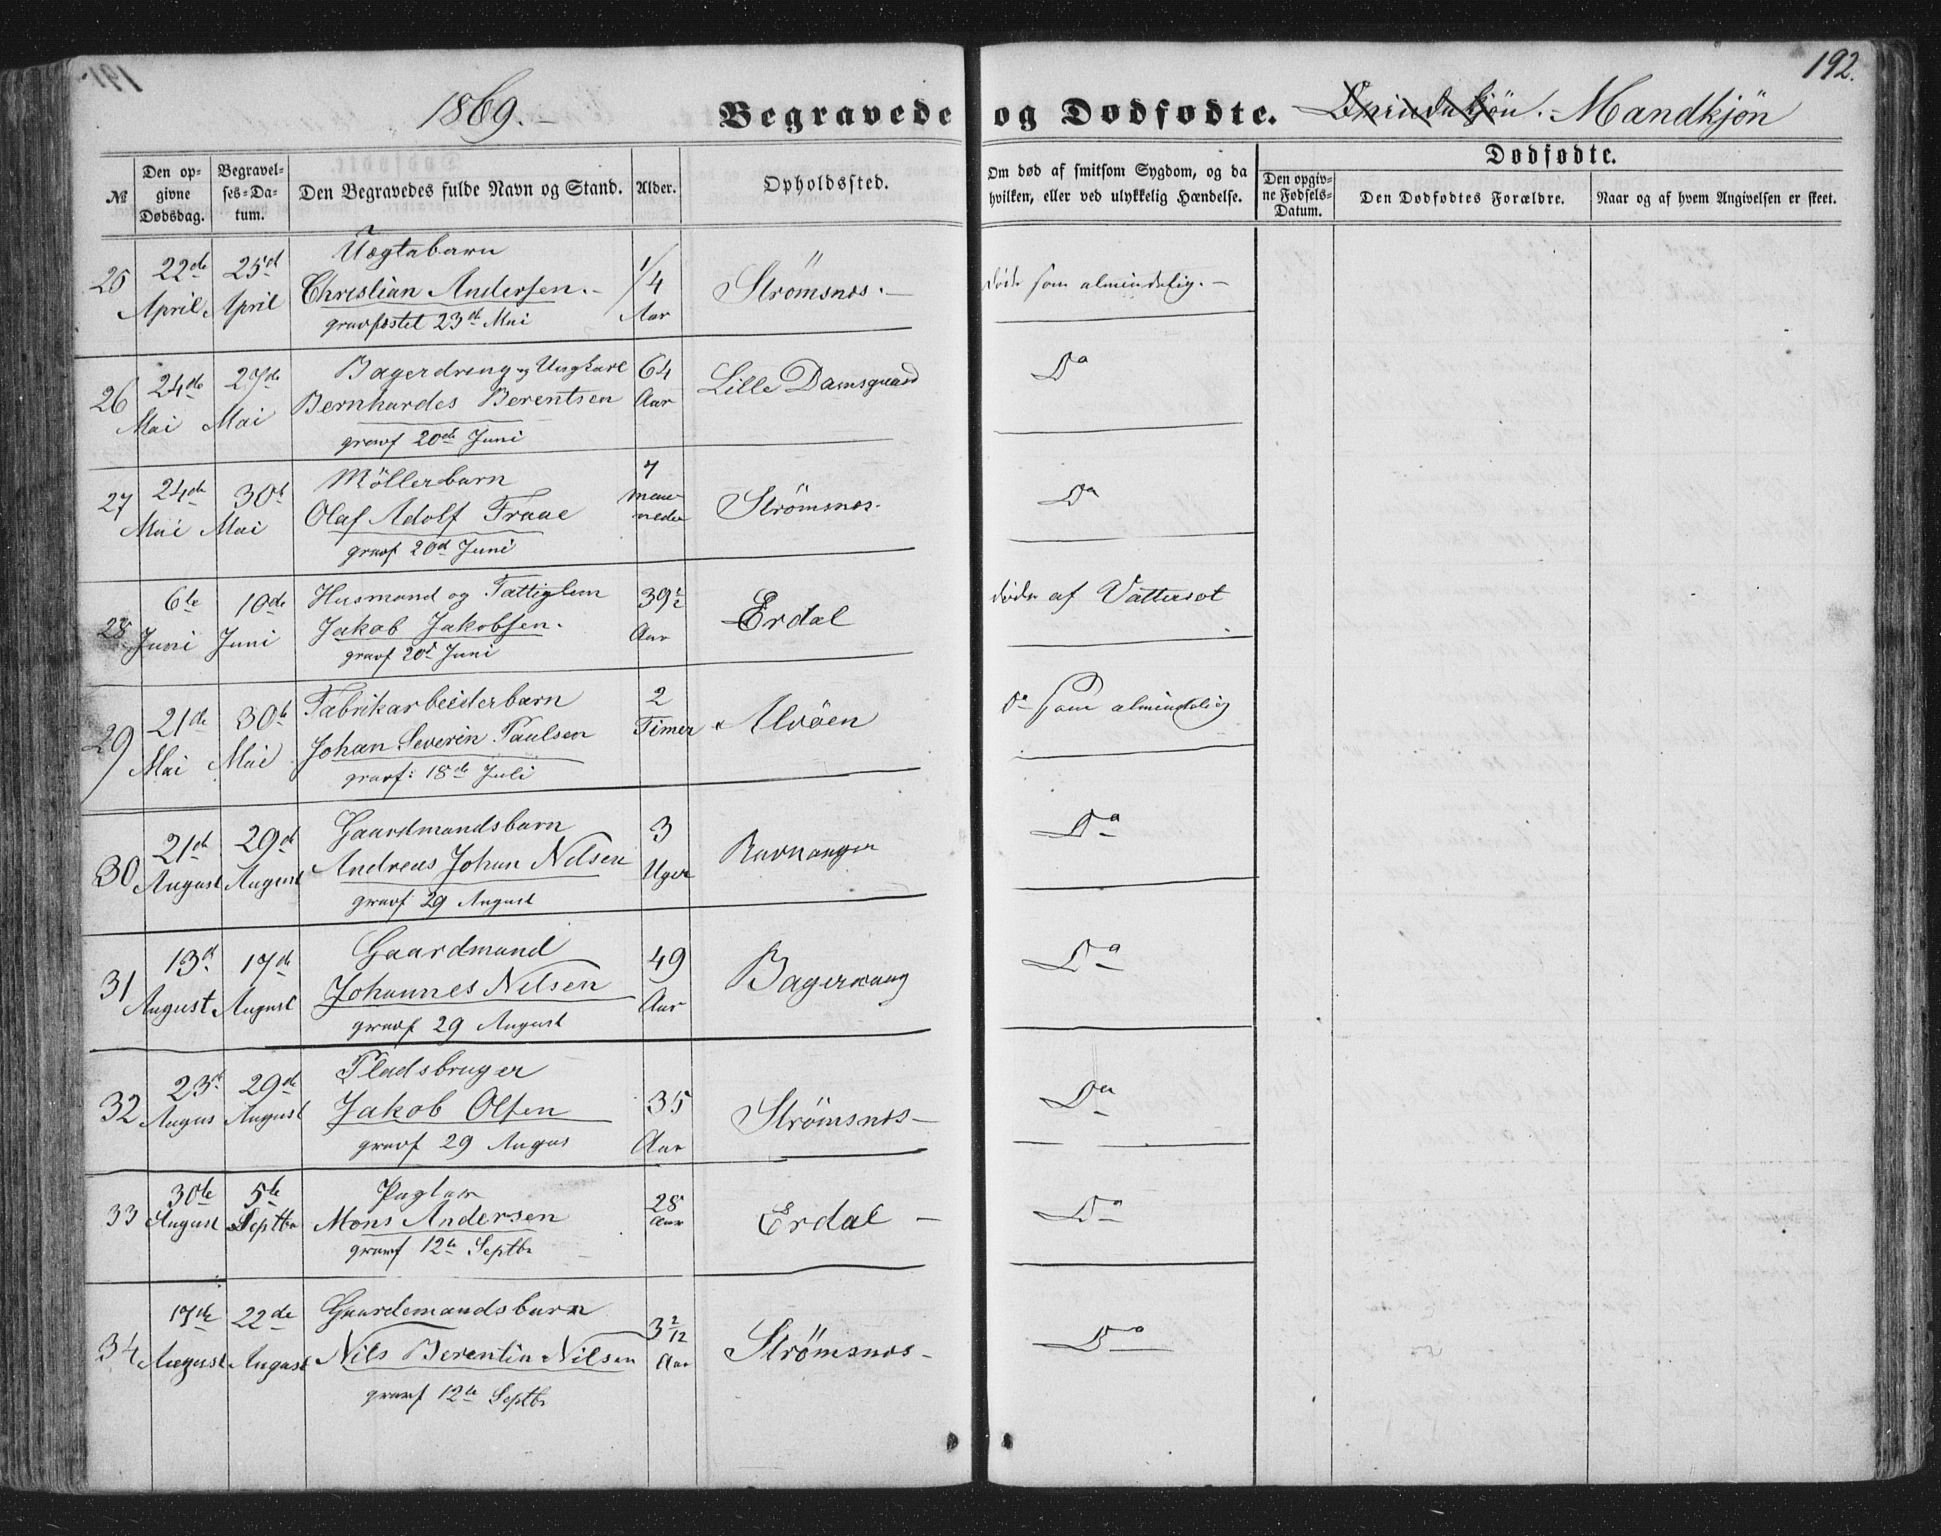 192.
1869.
Begravede og Dødfødte. Mandkjön
Dødfødte.
№
Den op-
givne
Dødsdag.
Begravel-
ses-Da-
tum.
Den Begravedes fulde Navn og Stand.
Alder.
Opholdssted.
Om død af smitsom Sygdom, og da
hvilken, eller ved ulykkelig Hændelse.
Den opgiv-
ne Fødsels-
Datum.
Den Dødfødtes Forældre.
Naar og af hvem Angivelsen er skeet.
25
22de April
25d April
Christian Andersen.
gravfæstet 23de Mai
1/4 Aar
Strömsnes.
döde som almindelig.
26
24de Mai
27de Mai
Bagerdreng og Ungkarl
Bernhardes Berentsen
gravf 20de Juni
64 Aar
Lille Damsgaard
Do
27
24de Mai
30te Mai
Möllerbarn
Olaf Adolf Fraae
gravf 20d Juni
7 maaneder
Strömsnes.
Do
28
6te Juni
10de Juni
Husmand og Fattiglem
Jakob Jakobsen.
gravf 20d Juni
39½ Aar
Erdal
döde af Vattersot
29
21de Mai
30te Mai
Fabrikarbeiderbarn
Johan Severin Paulsen
gravf: 18de Juli
2 Timer
Alvöen
Do som almindelig
30
21de August
29d August
Gaardmandsbarn
Andreas Johan Nilsen
gravf 29 August
3 Uger
Ravnanger
Do
31
13d August
17de August
Gaardmand
Johannes Nilsen
gravf 29 August
49 Aar
Do
32
23d Augus
29de August
Pladsbruger
Jakob Olsen
gravf 29 Augus
35 Aar
Strömsnes
Do
33
30te August
5te Septbr
Mons Andersen
gravf 12te Septbr
28 Aar
Erdal
Do
34
17de August
22de August
Gaardemandsbarn
Nils Berentin Nilsen
gravf 12te Septbr
3 2/12 Aar
Strömsnes
Do